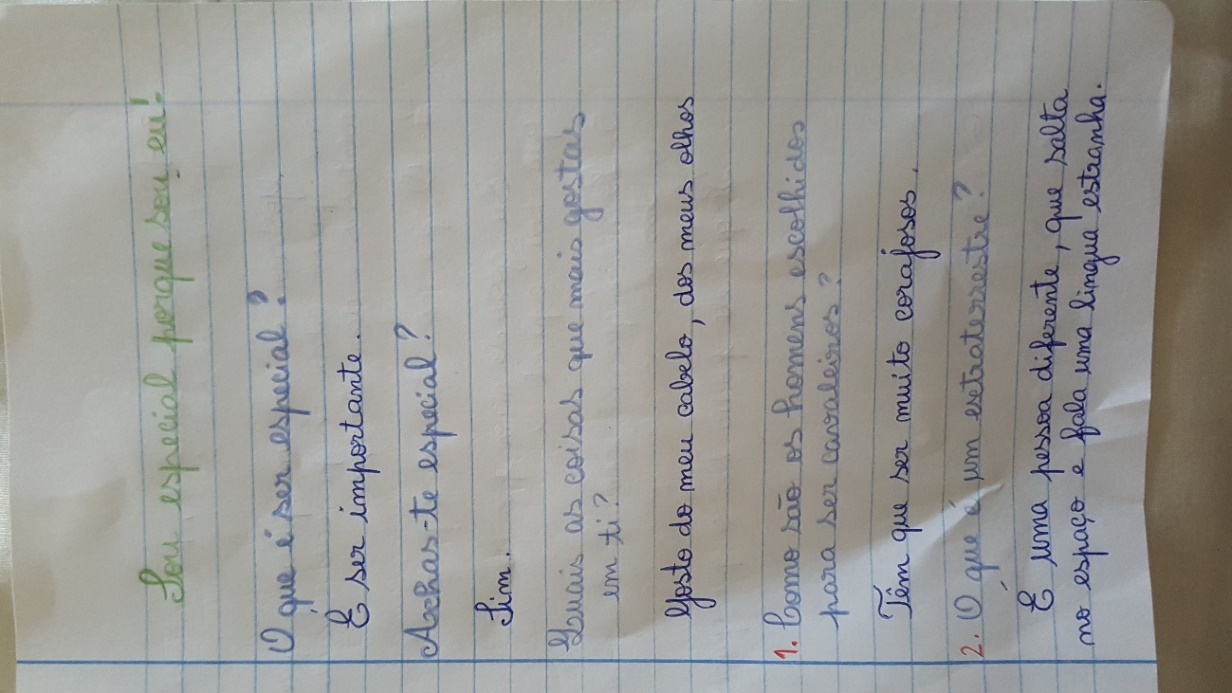 Sou especial porque sou eu!
O que é ser especial?
É ser importante.
Achas-te especial?
Sim.
Quais as coisas que mais gostas
em ti?
Gosto do meu cabelo, dos meus olhos
1. Como são os homens escolhidos
para ser cavaleiros?
Têm que ser muito corajosos.
2. O que é um extraterrestre?
É uma pessoa diferente, que salta
no espaço e fala uma língua estranha.